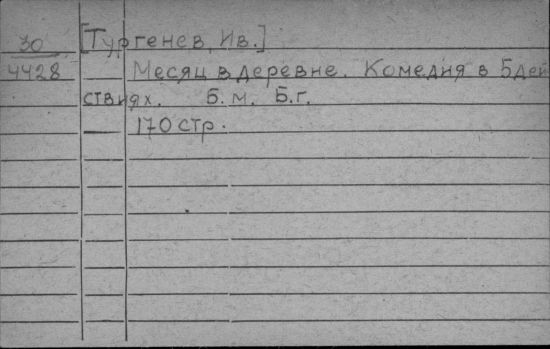 30 [Тургенев, Ив.]
4428 Месяц в деревне. Комедия в 5 дей
ствиях. Б. м. Б. г.
170 стр.